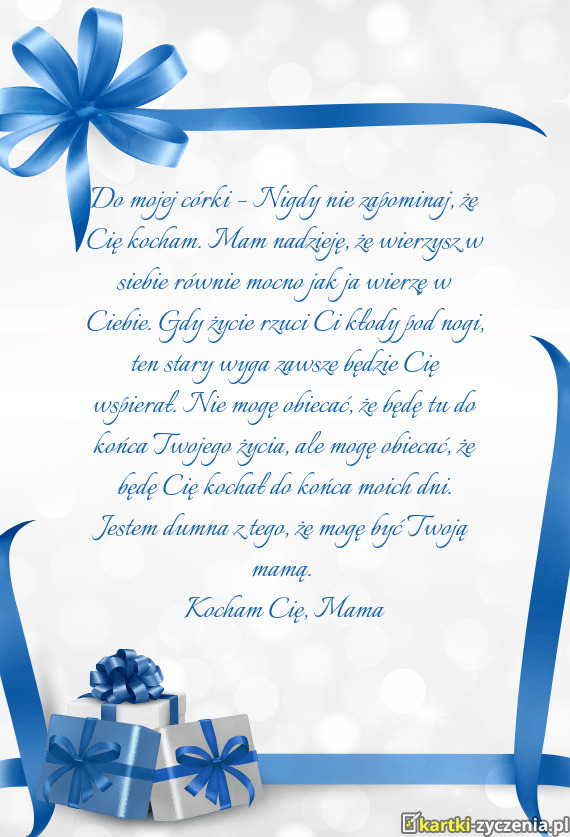 Do mojej córki – Nigdy nie zapominaj, że
Cię kocham. Mam nadzieję, że wierzysz w
siebie równie mocno jak ja wierzę w
Ciebie. Gdy życie rzuci Ci kłody pod nogi,
ten stary wyga zawsze będzie Cię
wspierał. Nie mogę obiecać, że będę tu do
końca Twojego życia, ale mogę obiecać, że
będę Cię kochał do końca moich dni.
Jestem dumna z tego, że mogę być Twoją
mamą.
Kocham Cię, Mama
kartki-zyczenia.pl